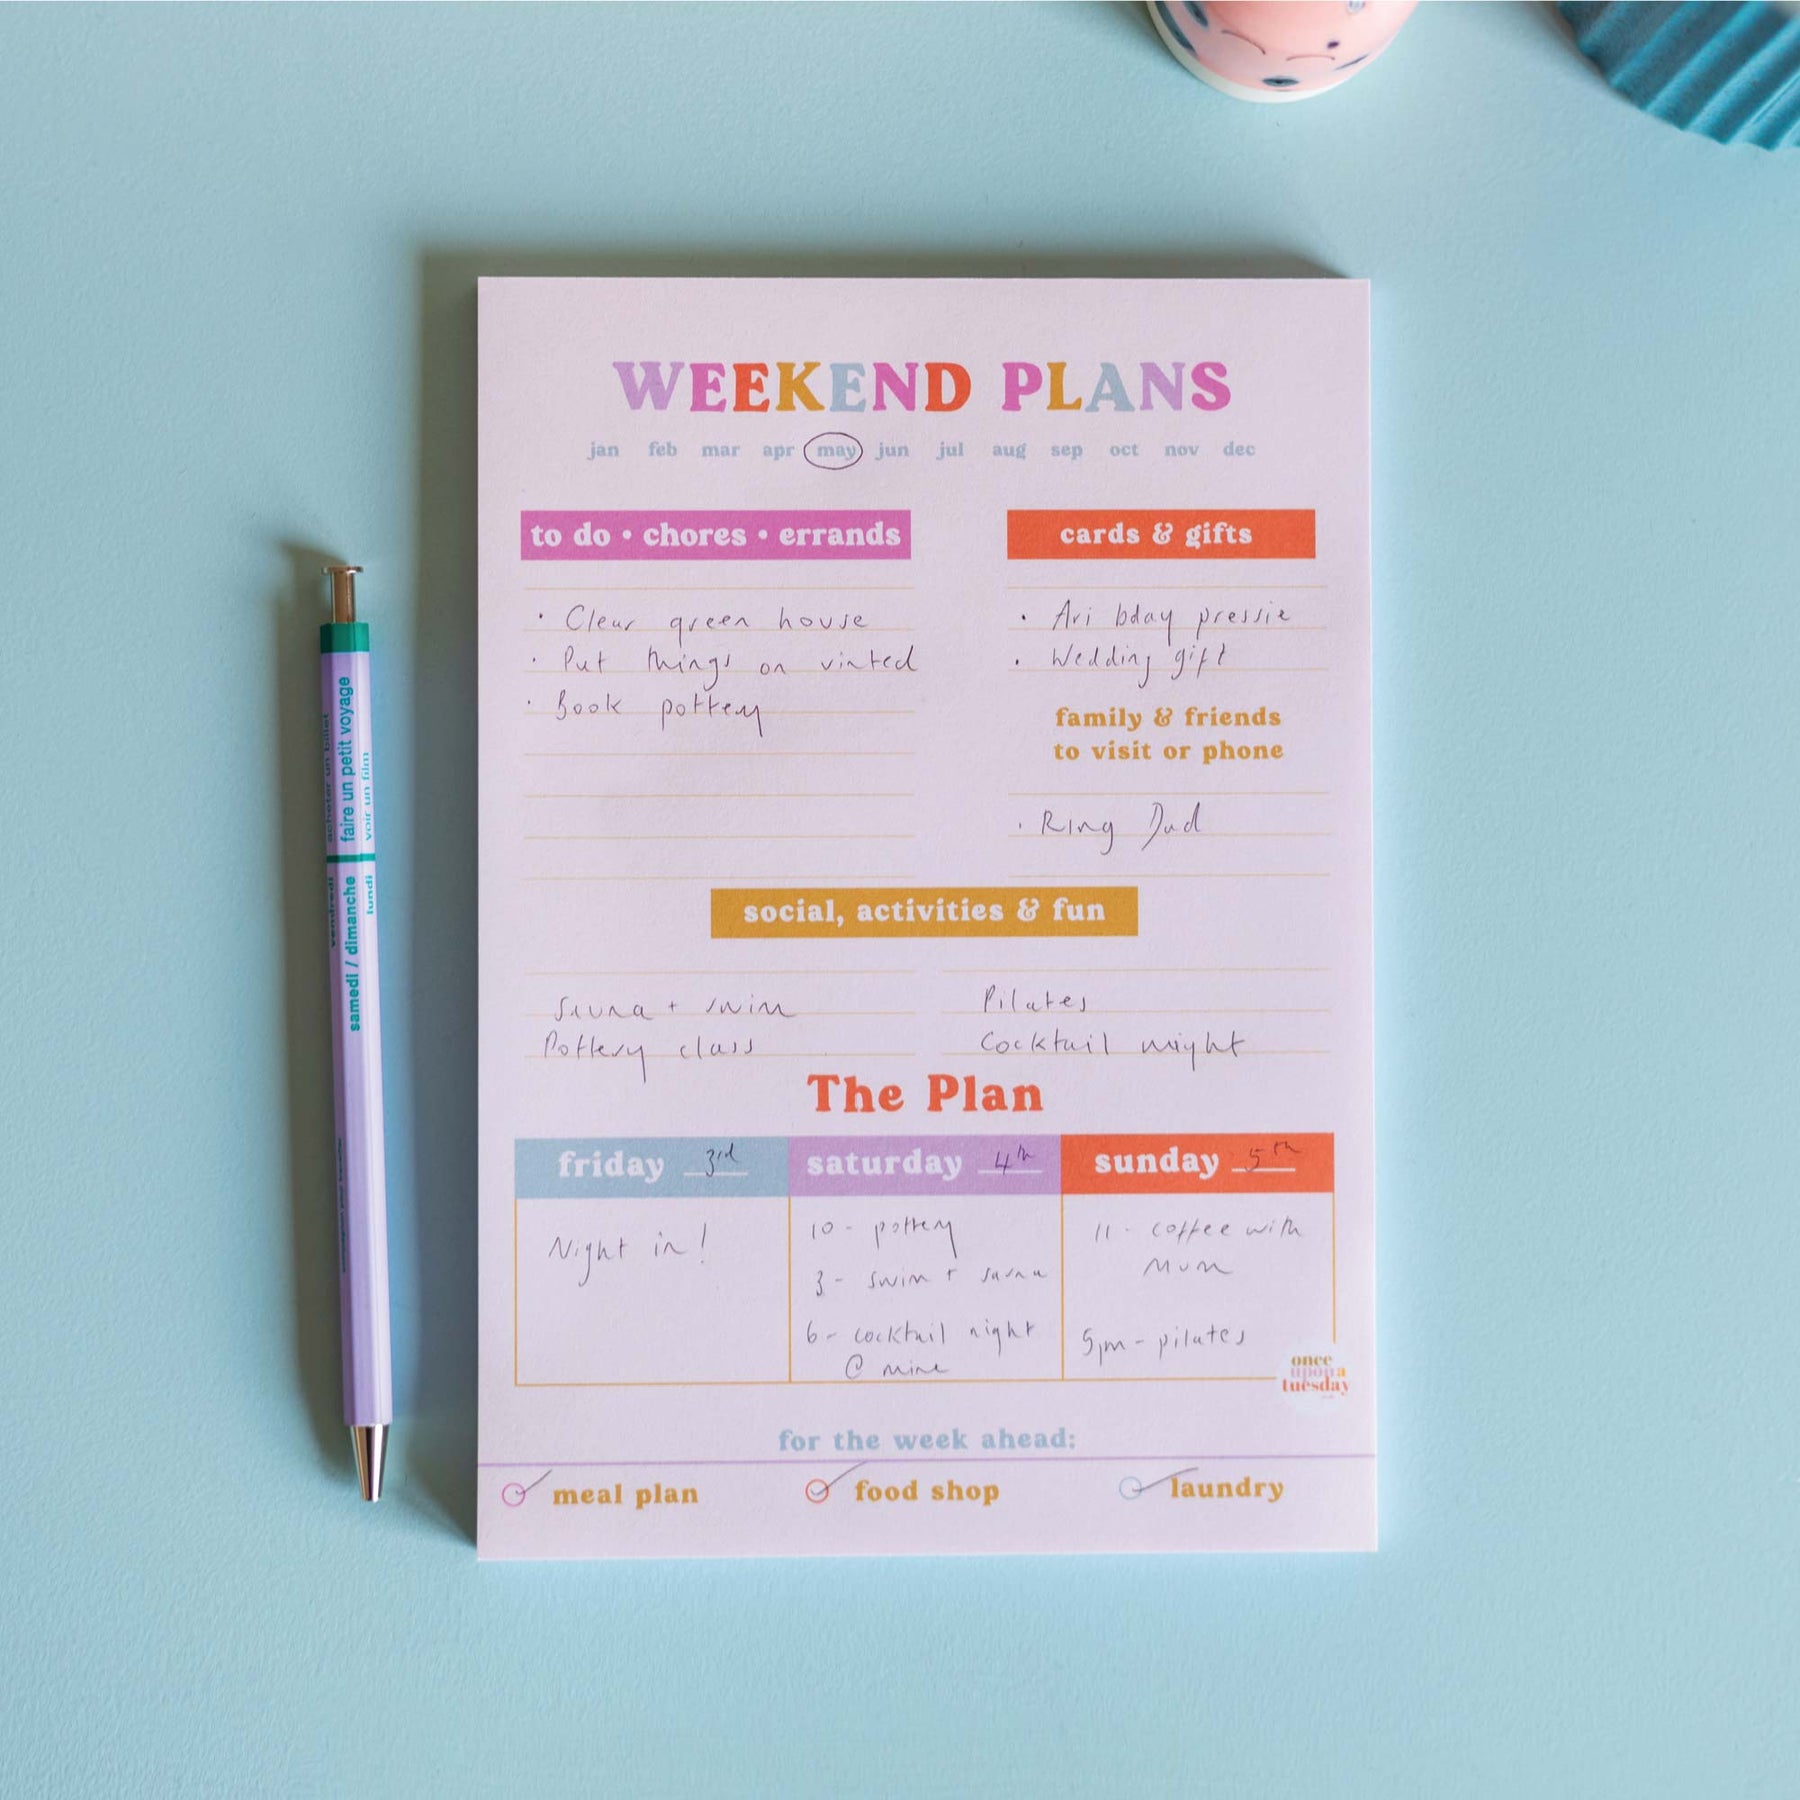 WEEKEND PLANS
jan feb mar apr may jun jul aug sep oct nov dec
to do • chores • errands
• Clear green house
• Put things on vinted
• Book pottery
cards & gifts
• Ari bday pressie
• Wedding gift
family & friends
to visit or phone
• Ring Dad
social, activities & fun
Sauna + swim
Pottery class
Pilates
Cocktail night
The Plan
friday 3rd
Night in!
saturday 4th
10 - pottery
3 - swim + sauna
6 - cocktail night
@ mine
sunday 5th
11 - coffee with
Mum
5pm - pilates
once
upon a
tuesday
for the week ahead:
meal plan
food shop
laundry
acheter un billet
faire un petit voyage
voir un film
vendredi
samedi / dimanche
lundi